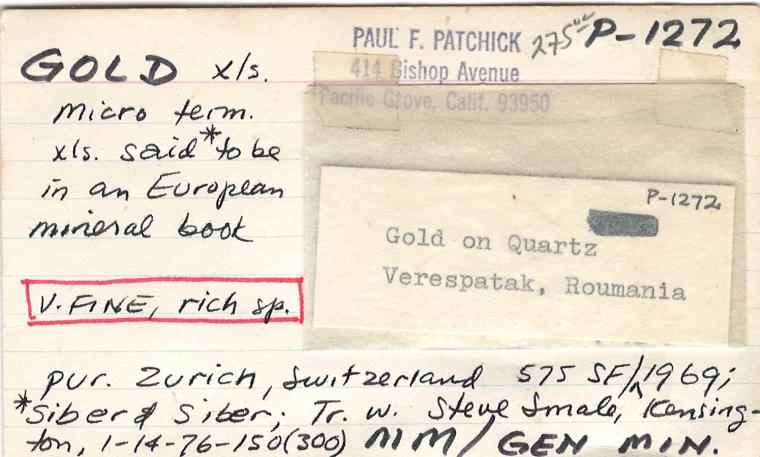 PAUL F. PATCHICK 275⁰⁰ P-1272
414 Bishop Avenue
Pacific Grove, Calif. 93950
GOLD x/s.
micro term.
x/s. said * to be
in an European
mineral book
V. FINE, rich sp.
P-1272
Gold on Quartz
Verespatak, Roumania
pur. Zurich, Switzerland 575 SF/^1969;
*Siber & Siber; Tr. w. Steve Smale, Kensing-
ton, 1-14-76-150(300) MM/GEN MIN.